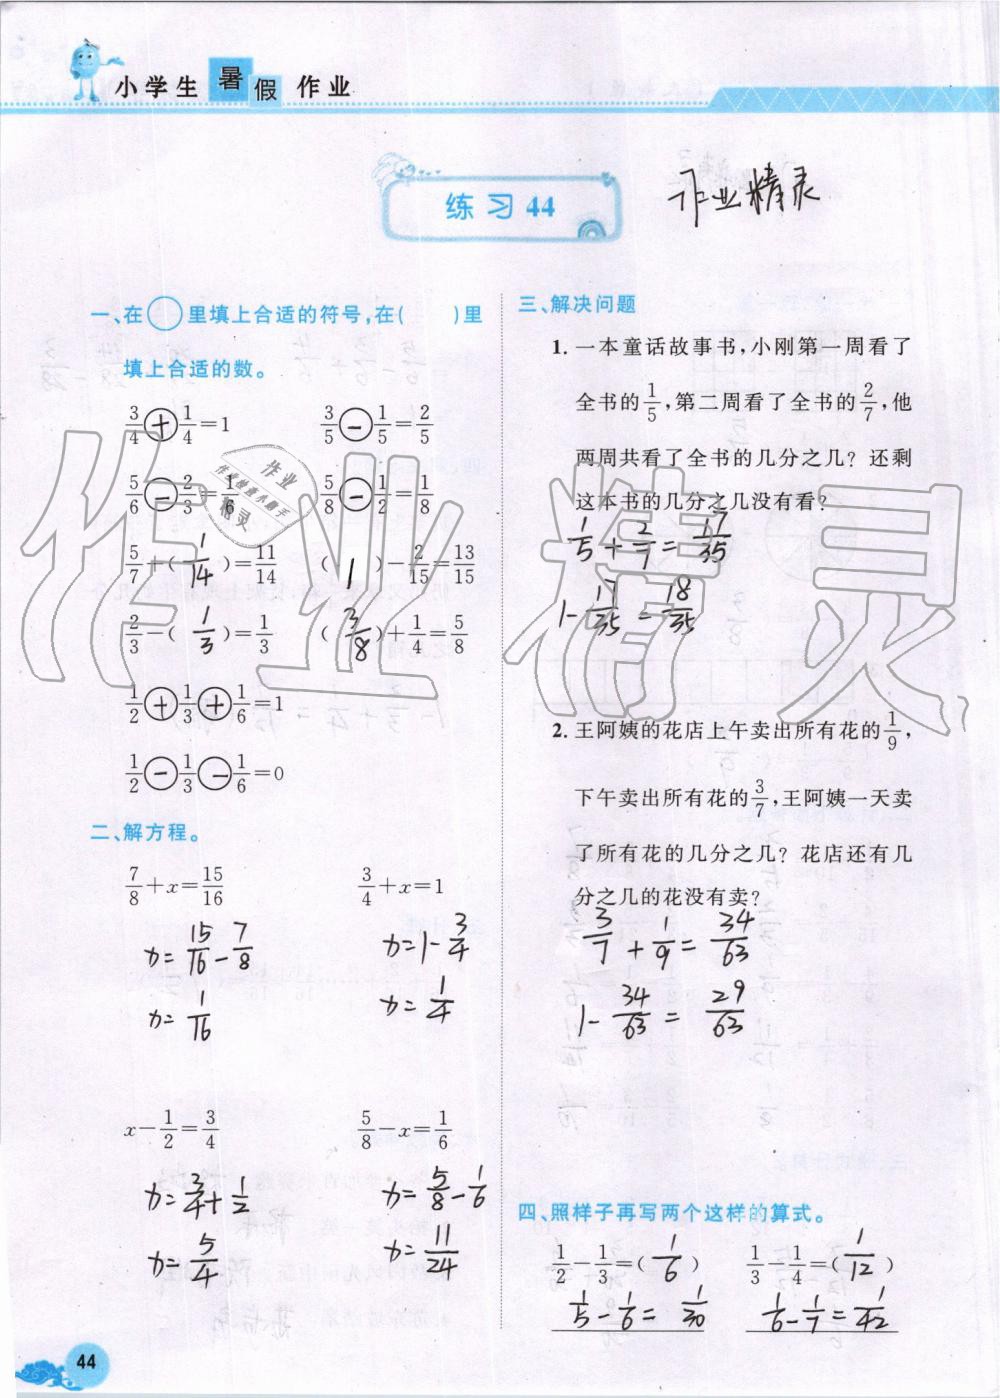 小学生暑假作业
练习44
作业精灵
一、在○里填上合适的符号,在( )里
填上合适的数。
3/4 + 1/4 = 1    3/5 - 1/5 = 2/5
5/6 - 2/3 = 1/6    5/8 - 1/2 = 1/8
5/7 + ( 1/14 ) = 11/14    ( 1 ) - 2/15 = 13/15
2/3 - ( 1/3 ) = 1/3    ( 3/8 ) + 1/4 = 5/8
1/2 + 1/3 + 1/6 = 1
1/2 - 1/3 - 1/6 = 0
二、解方程。
7/8 + x = 15/16    3/4 + x = 1
x = 15/16 - 7/8    x = 1 - 3/4
x = 1/16    x = 1/4
x - 1/2 = 3/4    5/8 - x = 1/6
x = 3/4 + 1/2    x = 5/8 - 1/6
x = 5/4    x = 11/24
三、解决问题
1. 一本童话故事书,小刚第一周看了
全书的1/5,第二周看了全书的2/7,他
两周共看了全书的几分之几?还剩
这本书的几分之几没有看?
1/5 + 2/7 = 17/35
1 - 17/35 = 18/35
2. 王阿姨的花店上午卖出所有花的1/9,
下午卖出所有花的3/7,王阿姨一天卖
了所有花的几分之几?花店还有几
分之几的花没有卖?
3/7 + 1/9 = 34/63
1 - 34/63 = 29/63
四、照样子再写两个这样的算式。
1/2 - 1/3 = ( 1/6 )    1/3 - 1/4 = ( 1/12 )
1/5 - 1/6 = 1/30    1/6 - 1/7 = 1/42
44
作业精灵